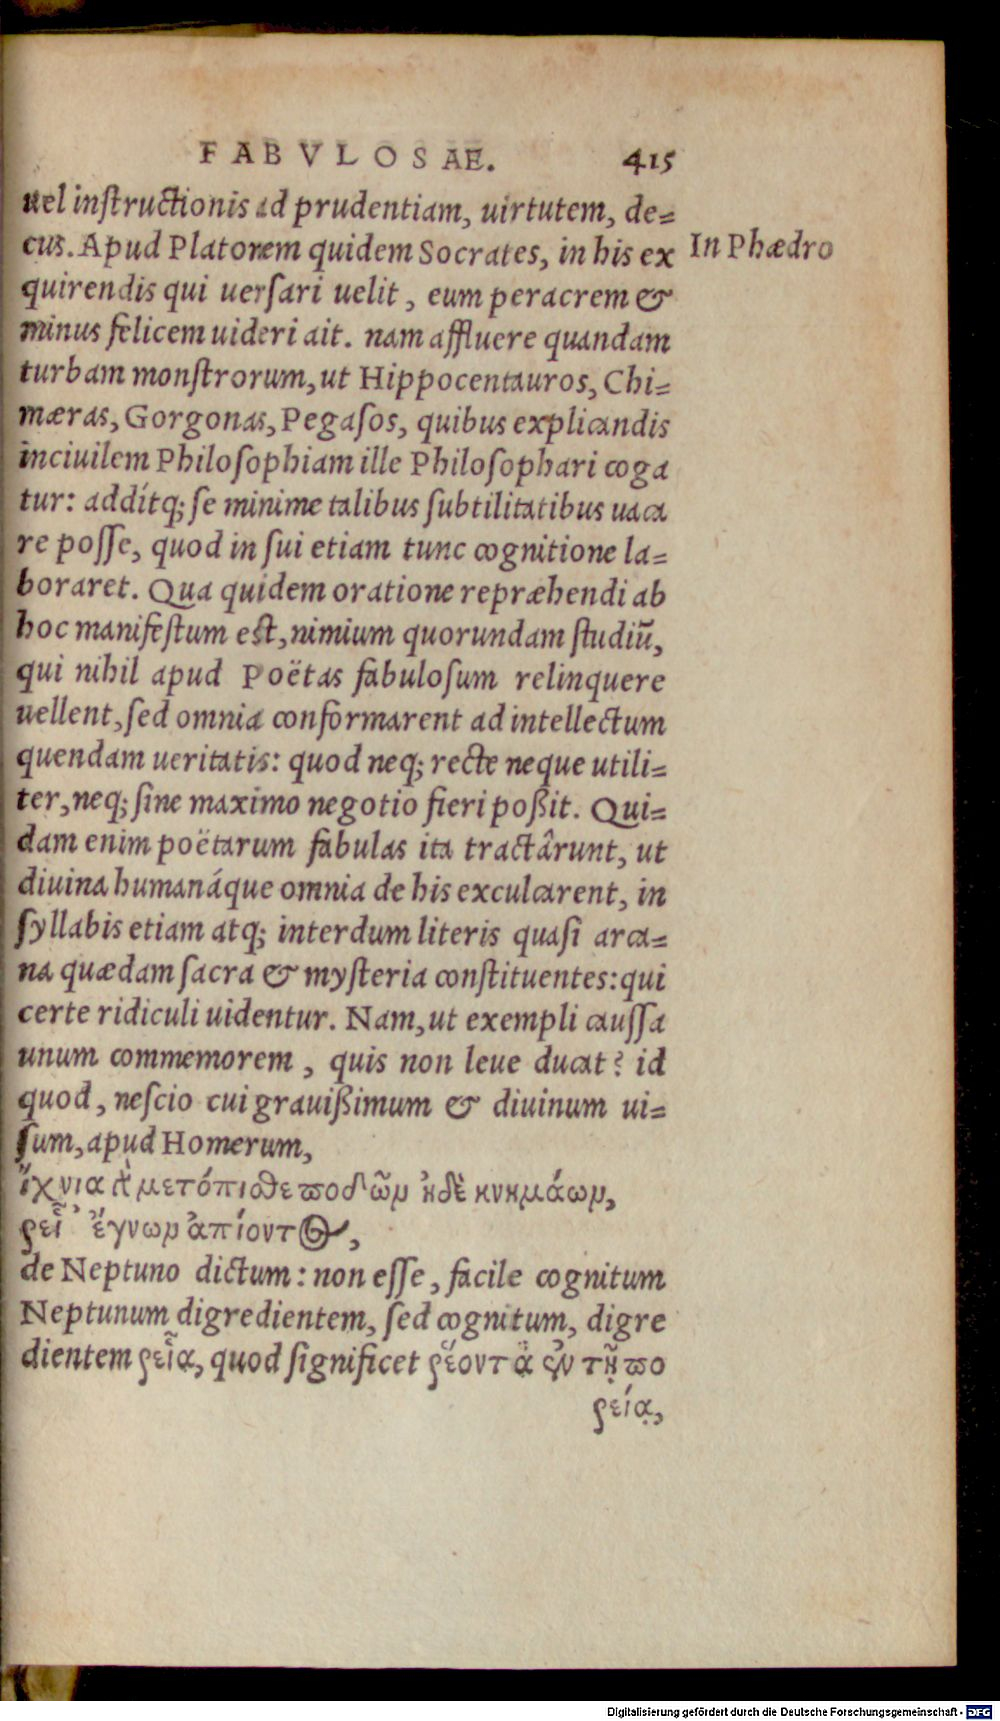 FABVLOSAE. 415
uel inſtructionis ad prudentiam, uirtutem, de=
cus. Apud Platonem quidem Socrates, in his ex
In Phædro
quirendis qui uerſari uelit, eum peracrem &
minus felicem uideri ait. nam affluere quandam
turbam monſtrorum, ut Hippocentauros, Chi=
mæras, Gorgonas, Pegaſos, quibus explicandis
inciuilem Philoſophiam ille Philoſophari coga
tur: addítq; ſe minime talibus ſubtilitatibus uaca
re poſſe, quod in ſui etiam tunc cognitione la=
boraret. Qua quidem oratione repræhendi ab
hoc manifeſtum eſt, nimium quorundam ſtudiũ,
qui nihil apud Poëtas fabuloſum relinquere
uellent, ſed omnia conformarent ad intellectum
quendam ueritatis: quod neq; recte neque utili=
ter, neq; ſine maximo negotio fieri poßit. Qui=
dam enim poëtarum fabulas ita tractârunt, ut
diuina humanáque omnia de his exculcarent, in
ſyllabis etiam atq; interdum literis quaſi arca=
na quædam ſacra & myſteria conſtituentes: qui
certe ridiculi uidentur. Nam, ut exempli cauſſa
unum commemorem, quis non leue ducat? id
quod, neſcio cui grauißimum & diuinum ui=
ſum, apud Homerum,
ἴχνια δὲ μετόπισθε ποδῶν ἠδὲ κνημάων,
ῥεῖ᾽ ἔγνων ἀπίοντος,
de Neptuno dictum: non eſſe, facile cognitum
Neptunum digredientem, ſed cognitum, digre
dientem ῥεῖα, quod ſignificet ῥέοντα ἐν τῇ πο
ρείᾳ,
Digitalisierung gefördert durch die Deutsche Forschungsgemeinschaft - DFG